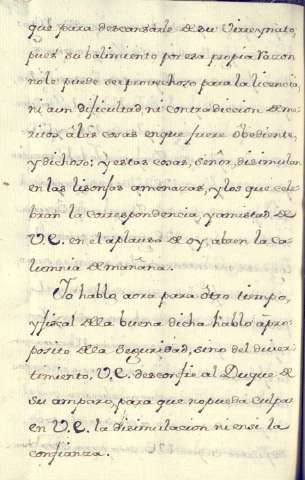 que para descansarle de su Virreynato,
pues su balimiento por esa propia razon
nole puede ser provechoso para la licencia,
ni aun dificultad, ni contradiccion de me
ritos, á las cosas en que fuere obediente,
y dichoso: y estas cosas, Señor, disimulan
en las lisonjas amenazas, y los que cele
bran la correspondencia, y amistad de
V.E. en el aplauso de oy, abren la ca
lumnia de mañana.
Yo hablo aora para otro tiempo,
y fiscal de la buena dicha hablo á pro
posito de la Seguridad, sino del diver
timiento, V.E. desconfie al Duque de
su amparo, para que no pueda culpar
en V.E. la disimulacion ni en si la
confianza.